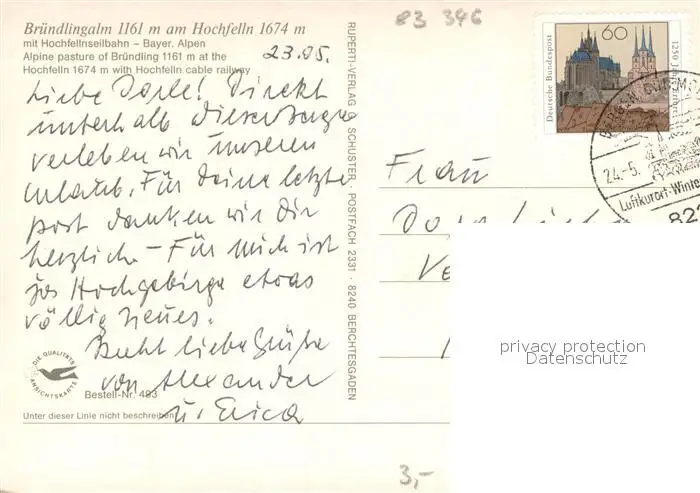 83 346
Bründlingalm 1161 m am Hochfelln 1674 m
mit Hochfellnseilbahn – Bayer. Alpen
Alpine pasture of Bründling 1161 m at the
Hochfelln 1674 m with Hochfelln cable railway
23.05.
Liebe Dorle! Direkt
unterhalb dieser Berge
verleben wir unseren
Urlaub. Für Deine letzte
Post danken wir Dir
herzlich – Für mich ist
das Hochgebirge etwas
völlig Neues.
Recht liebe Grüße
von Alexander
u. Erica
DIE QUALITÄTS
ANSICHTSKARTE
Bestell-Nr. 493
Unter dieser Linie nicht beschreiben!
RUPERTI-VERLAG SCHUSTER · POSTFACH 2331 · 8240 BERCHTESGADEN
Deutsche Bundespost
60
1250 Jahre Erfurt
24.-5.
Luftkurort-Winte
822
Frau
privacy protection
Datenschutz
3,-